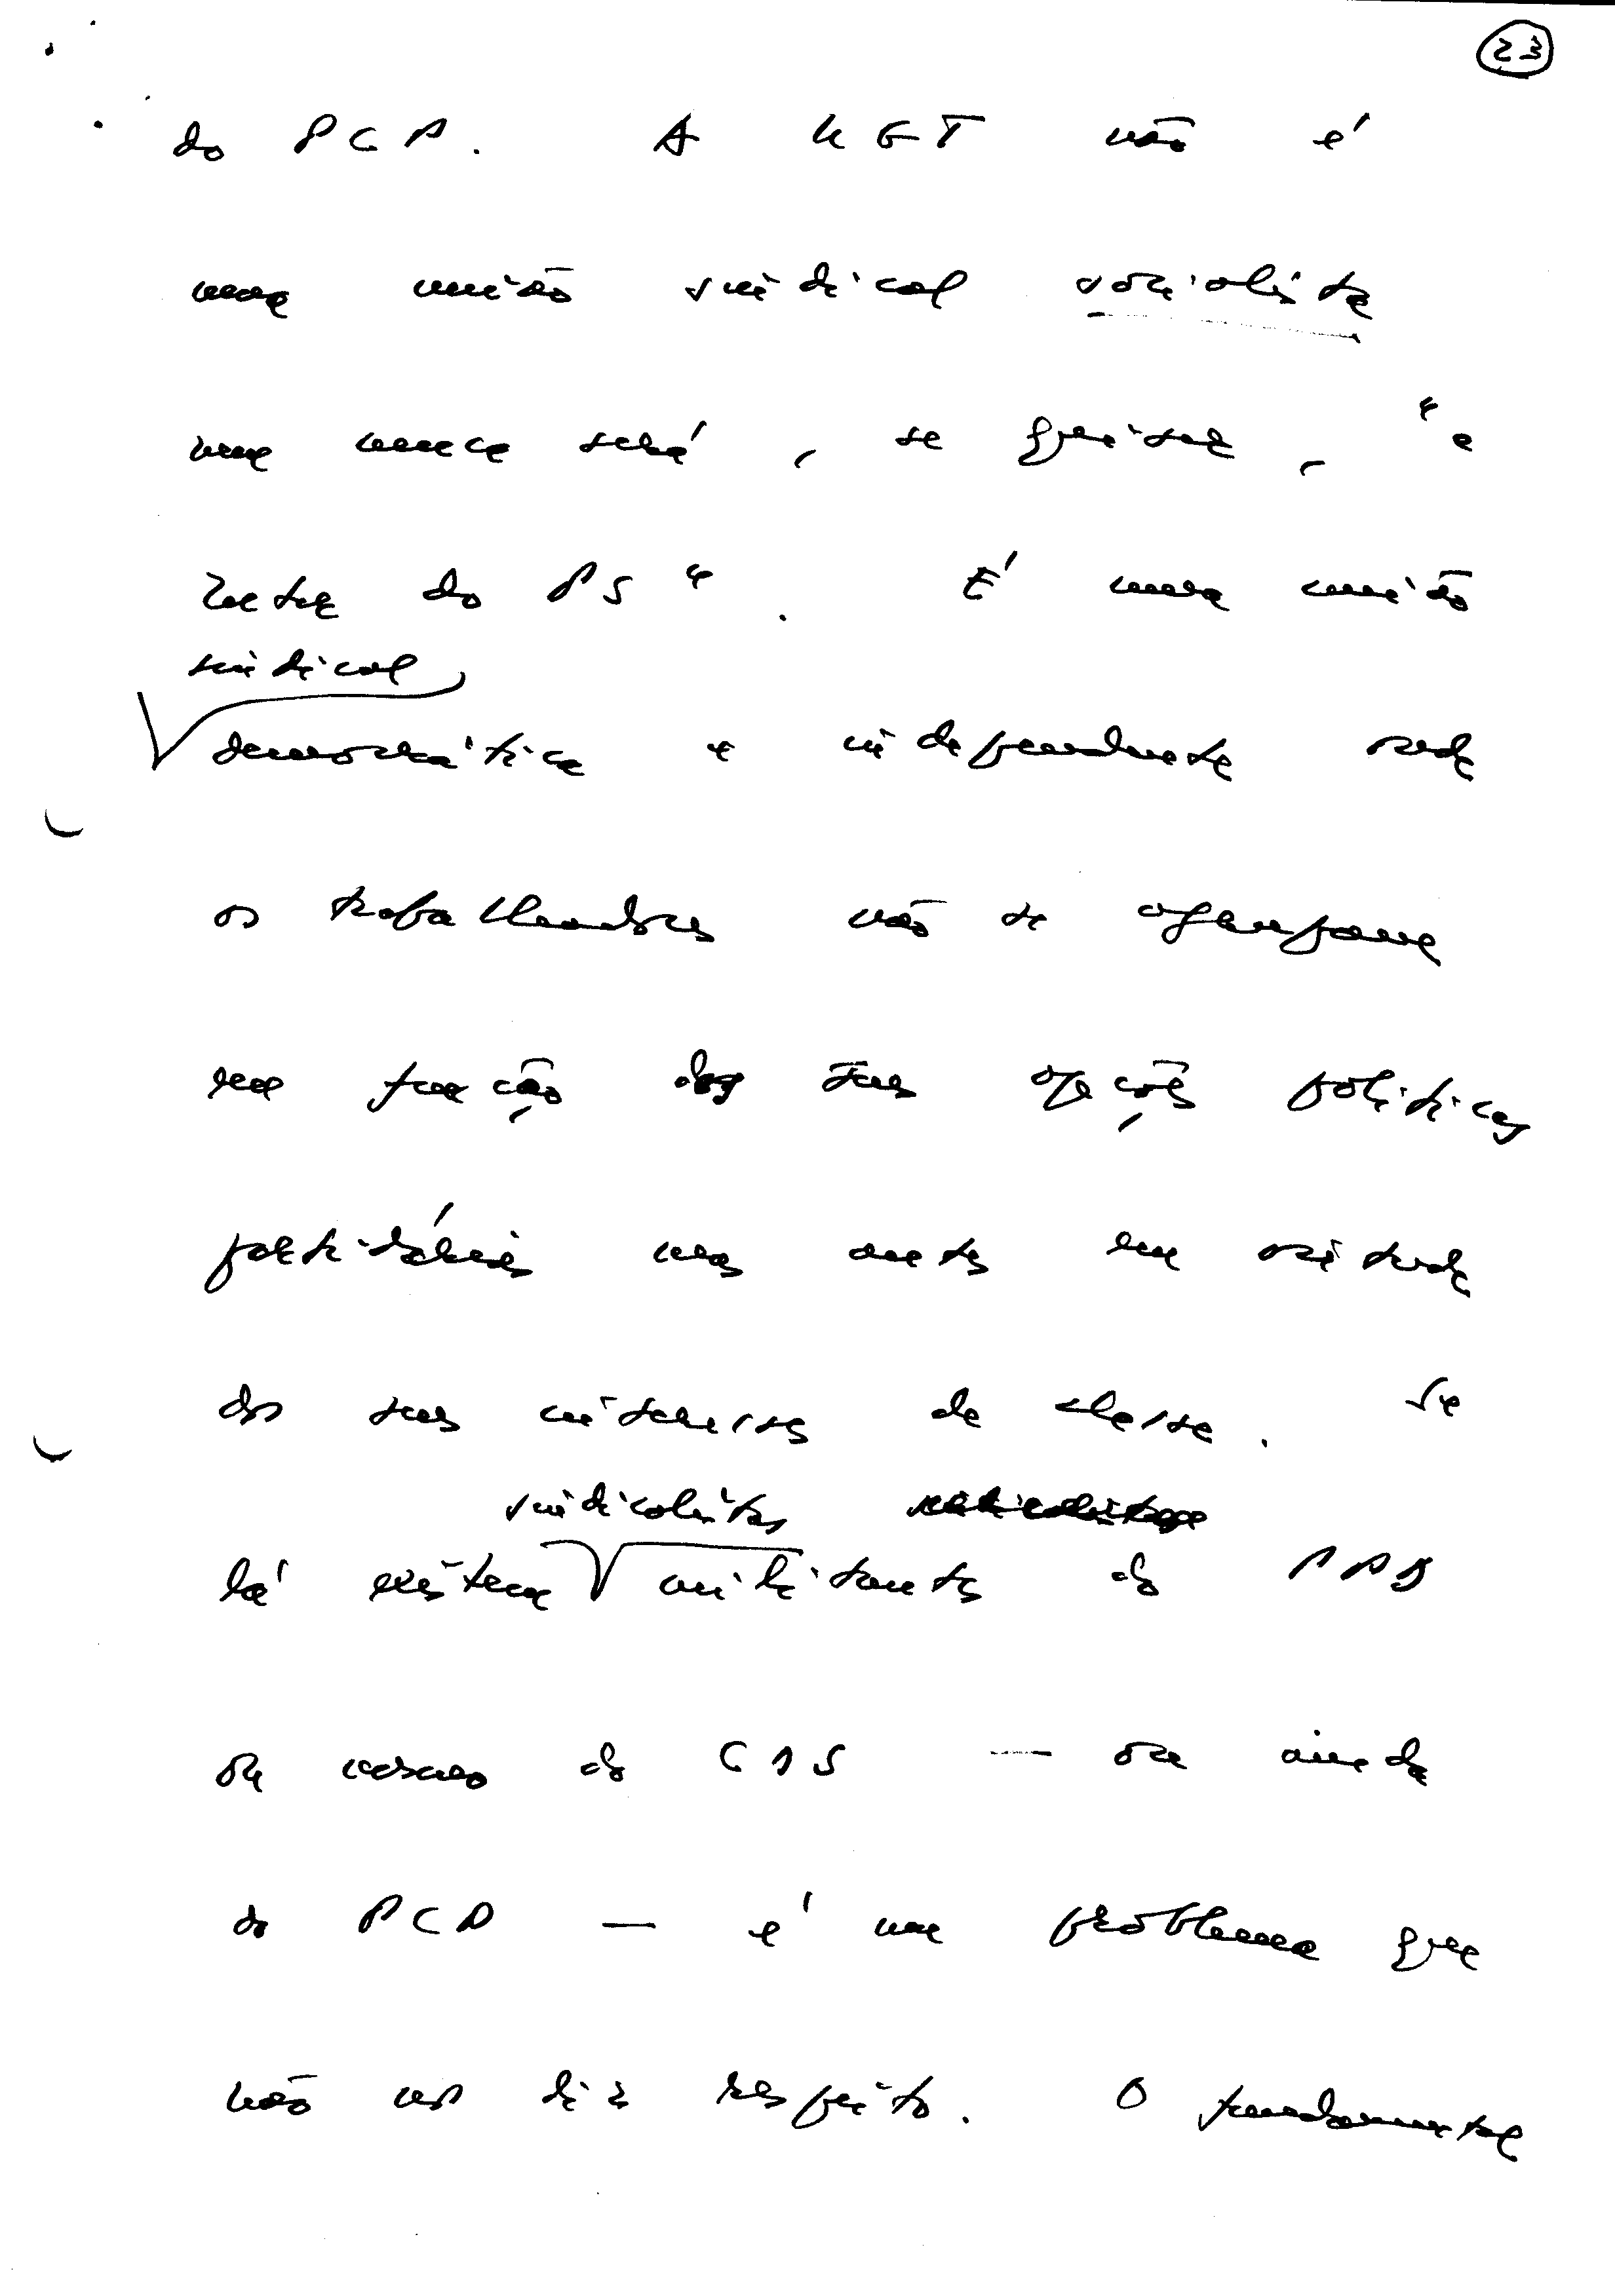 23
do PCP. A UGT não é
uma união sindical socialista
nem nunca será, se quiser, "a
Inter do PS". É uma união
sindical
democrática e independente onde
os trabalhadores não se agrupam
em função das suas opções políticas
partidárias mas antes em virtude
dos seus interesses de classe. Se
sindicalistas
lá existem militantes do PPD
ou mesmo do CDS — ou ainda
do PCP — é um problema que
não nos diz respeito. O fundamental